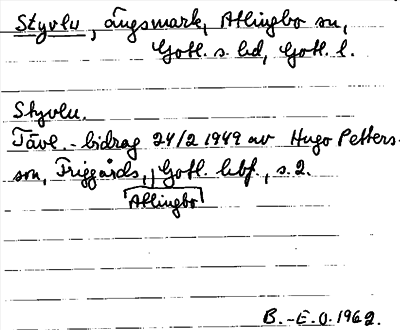 Styvlu, ängsmark, Atlingbo sn,
Gotl. s. hd, Gotl. l.
Styvlu.
Tävl.-bidrag 24/2 1949 av Hugo Petters-
son, Friggårds, Gotl. hbf., s. 2.
Atlingbo
B.-E.O. 1962.